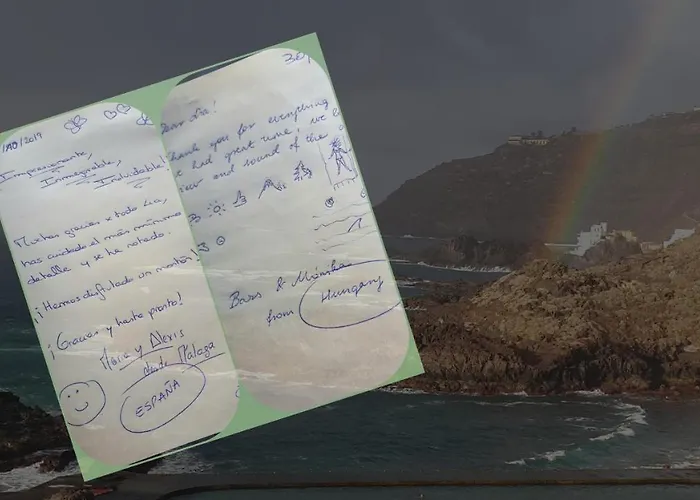 /2019
Impresionante,
Inmejorable,
Inolvidable!
Muchas gracias x todo Lia,
has cuidado el más mínimo
detalle y se ha notado.
¡Hemos disfrutado un montón!
¡Gracias y hasta pronto!
María y Alexis
desde Málaga
ESPAÑA
Dear Lia!
Thank you for everything
we had great time, we
view and sound of the
& 
from Hungary